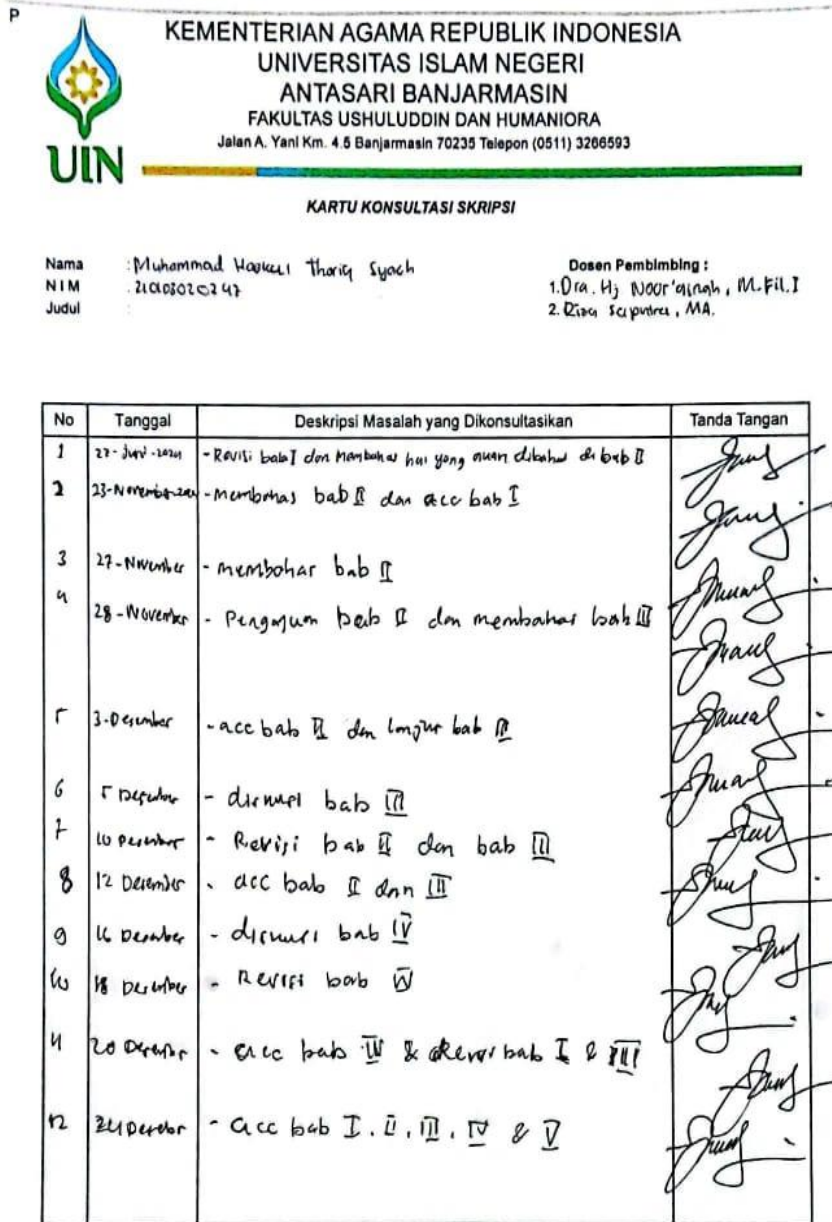 P
KEMENTERIAN AGAMA REPUBLIK INDONESIA
UNIVERSITAS ISLAM NEGERI
ANTASARI BANJARMASIN
FAKULTAS USHULUDDIN DAN HUMANIORA
Jalan A. Yani Km. 4.5 Banjarmasin 70235 Telepon (0511) 3266593
UIN
KARTU KONSULTASI SKRIPSI
Nama : Muhammad Thoriq Syach
NIM :
Judul :
Dosen Pembimbing :
1. Dra. Hj Noor'ainah, M.Fil.I
2. Riza Saputra, MA.
No Tanggal Deskripsi Masalah yang Dikonsultasikan Tanda Tangan
1 - Revisi bab I dan membahas hal yang akan dibahas di bab II
2 23-November - Membahas bab II dan acc bab I
3 27-November - membahas bab II
4 28-November - Pengajuan bab II dan membahas bab III
5 3-Desember - acc bab II dan lanjut bab III
6 5 Desember - diskusi bab III
7 10 Desember - Revisi bab II dan bab III
8 12 Desember - acc bab II dan III
9 16 Desember - diskusi bab IV
10 18 Desember - Revisi bab IV
11 20 Desember - acc bab IV & Revisi bab I & III
12 24 Desember - acc bab I, II, III, IV & V